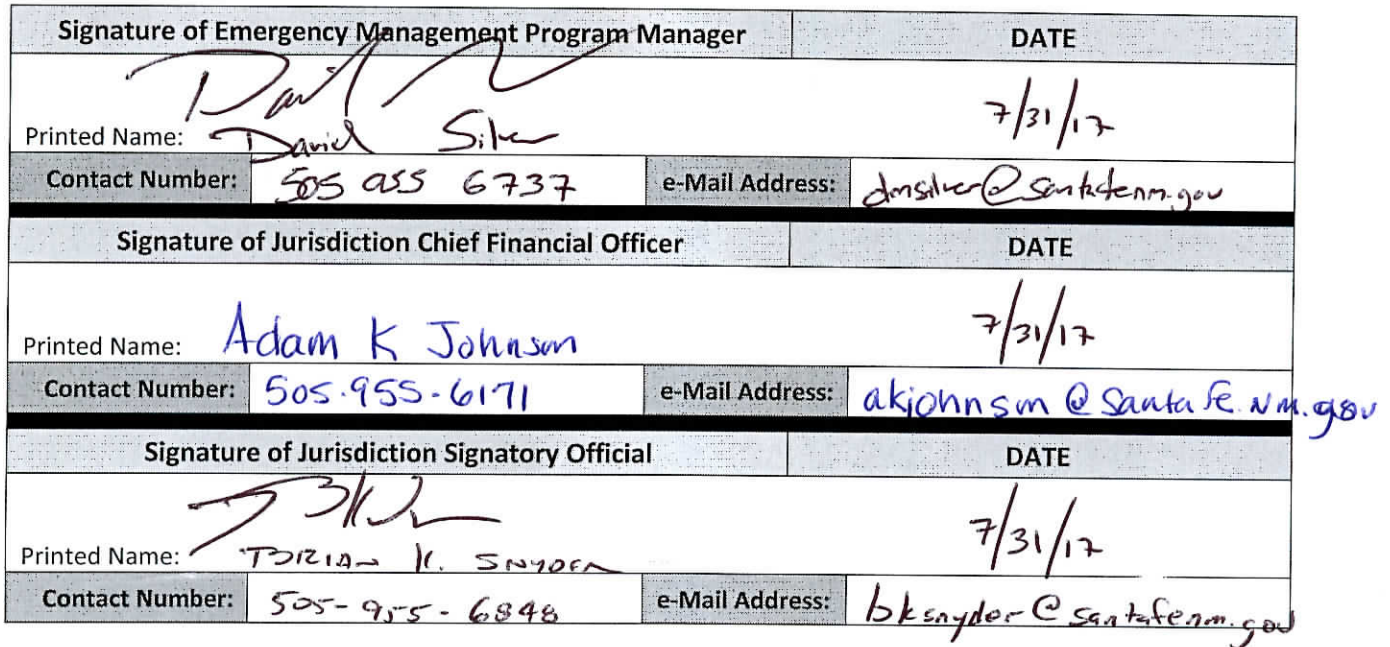 Signature of Emergency Management Program Manager DATE
7/31/17
Printed Name: David Silver
Contact Number: 505 955 6737 e-Mail Address: dmsilver@santafenm.gov
Signature of Jurisdiction Chief Financial Officer DATE
Printed Name: Adam K Johnson 7/31/17
Contact Number: 505.955.6171 e-Mail Address: akjohnson@santafe.nm.gov
Signature of Jurisdiction Signatory Official DATE
7/31/17
Printed Name: BRIAN K. SNYDER
Contact Number: 505-955-6848 e-Mail Address: bksnyder@santafenm.gov